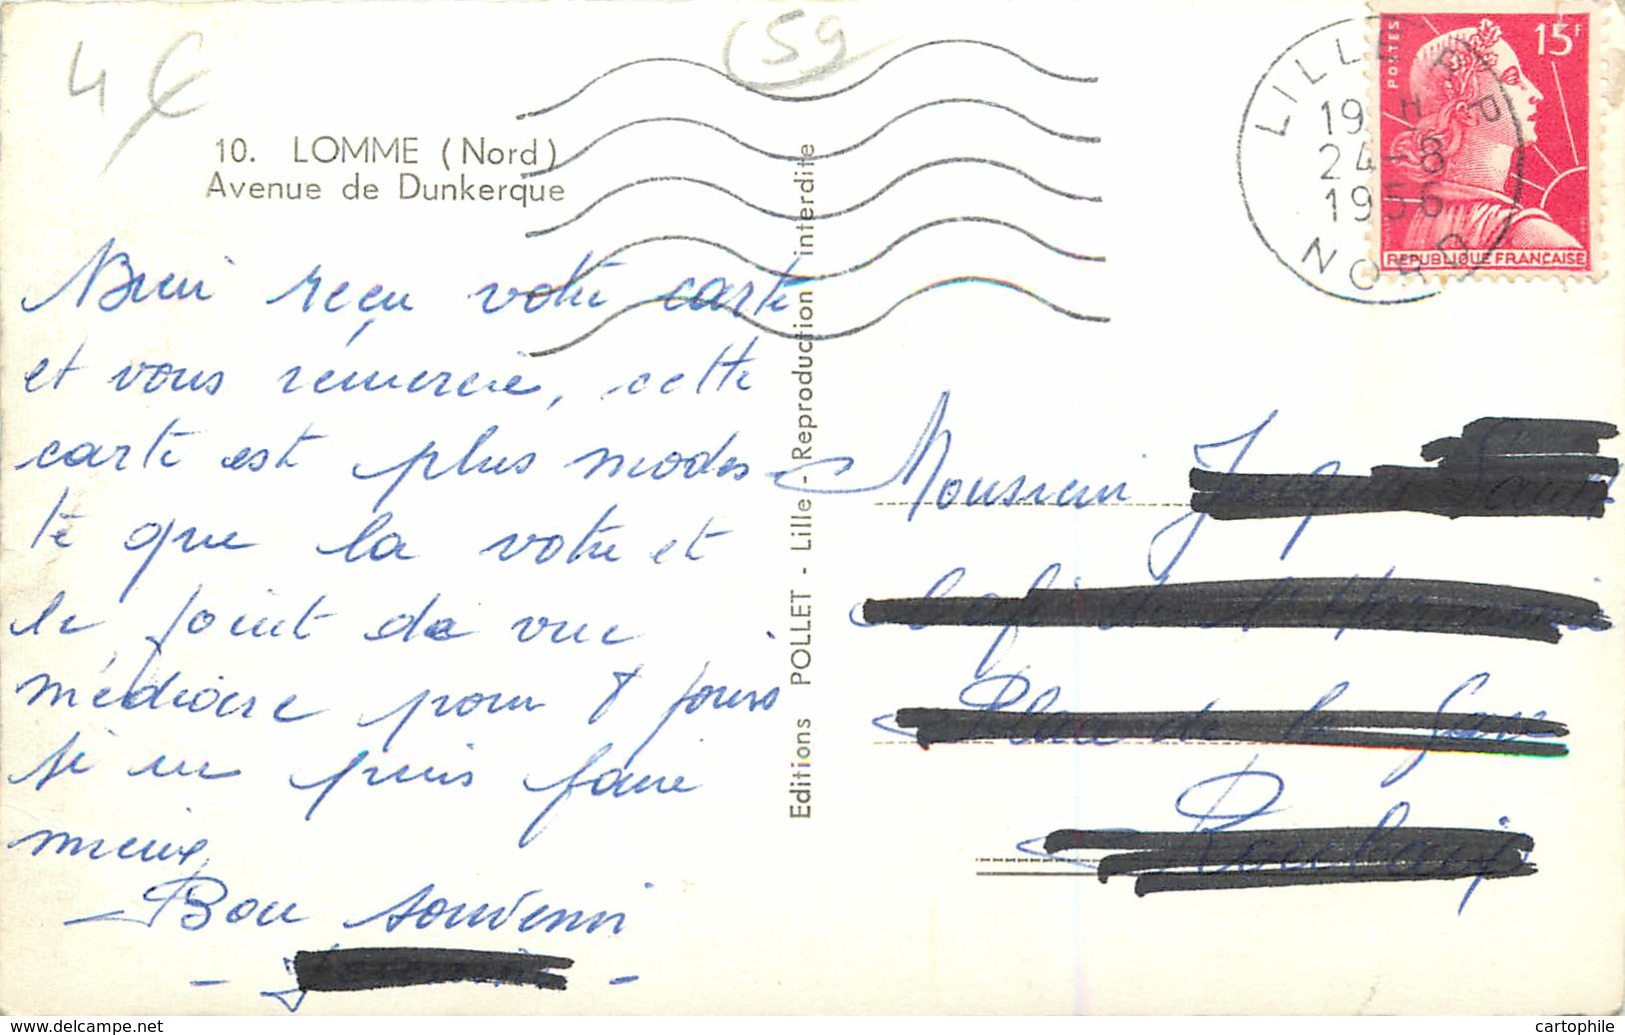 4 €
(59
10. LOMME (Nord)
Avenue de Dunkerque
Bien reçu votre carte
et vous remercie, cette
carte est plus modes-
te que la votre et
le joint de vue
médiocre pour 8 jours
je ne puis faire
mieux,
Bon souvenir
Editions POLLET - Lille - Reproduction interdite
LILLE R.P.
19 H
24-8
1956
NORD
POSTES
15F
REPUBLIQUE FRANÇAISE
Monsieur
cartophile.com